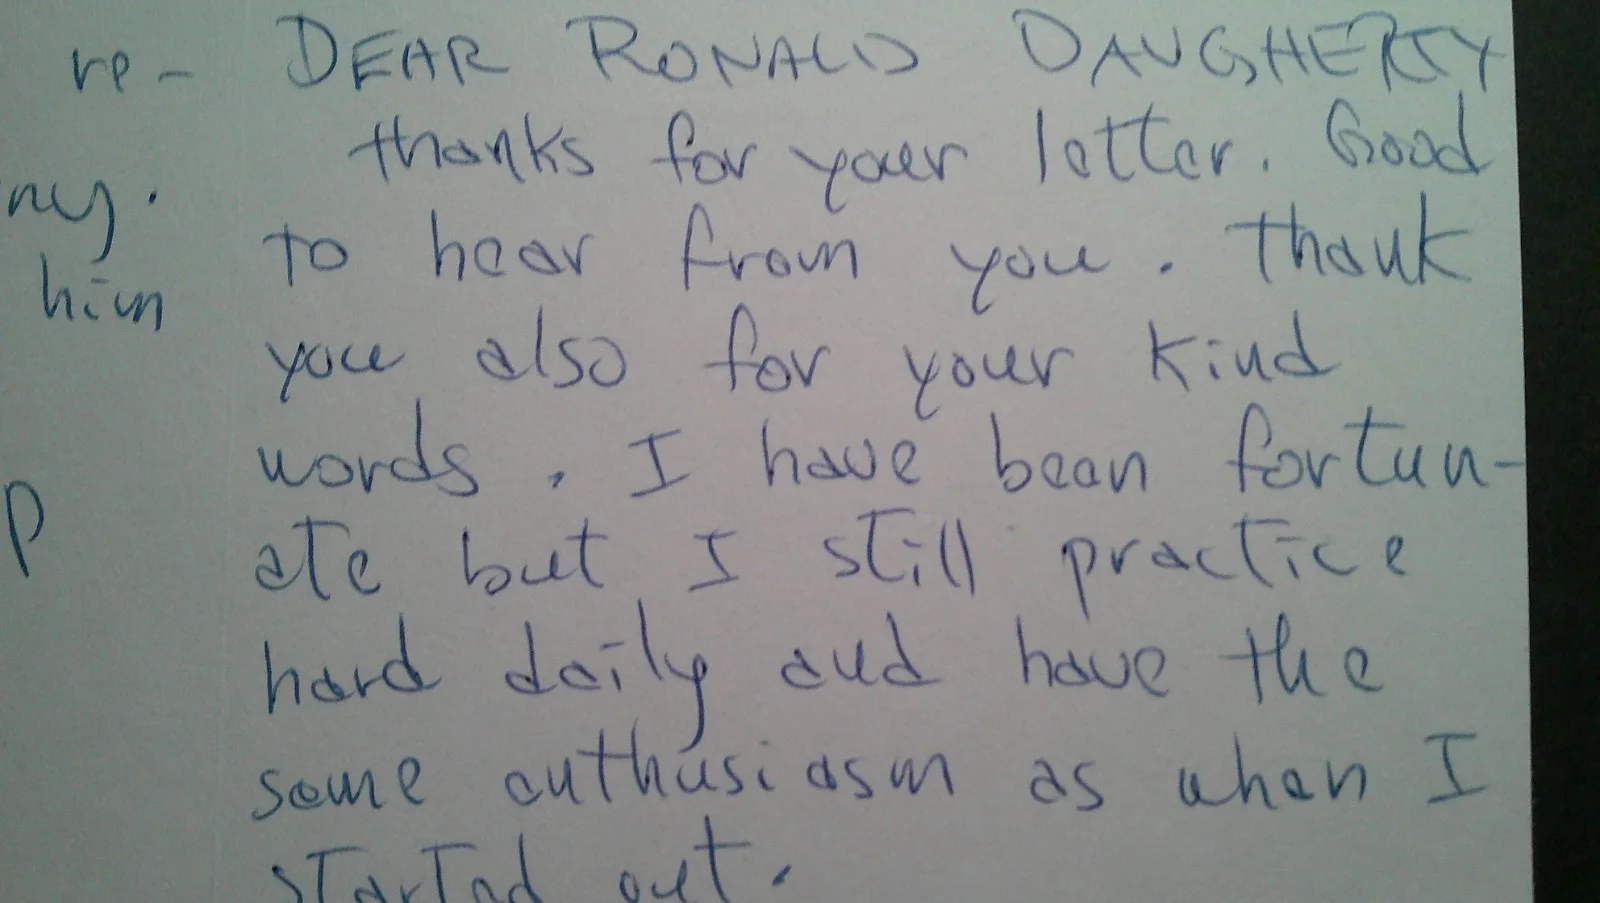 re-
ny.
him
p
DEAR RONALD DAUGHERTY
thanks for your letter. Good
to hear from you. Thank
you also for your kind
words. I have been fortun-
ate but I still practice
hard daily and have the
same enthusiasm as when I
started out.